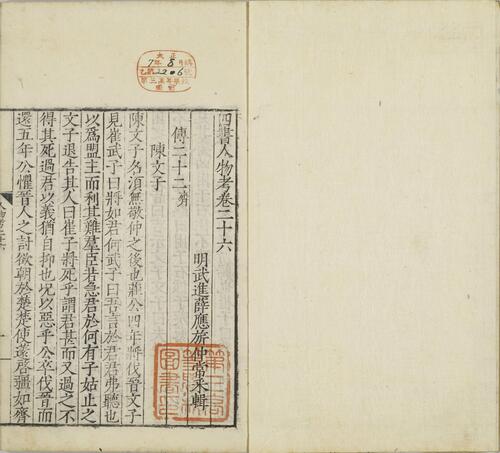 大正
7年8月購
2206
四書人物考卷二十六
明武進薛應旂仲常采輯
傳二十二 齊
陳文子
陳文子名須無敬仲之後也莊公四年將伐晉文子
見崔武子曰將如君何武子曰吾言於君君弗聽也
以爲盟主而利其難羣臣若急君於何有子姑止之
文子退告其人曰崔子將死乎謂君甚而又過之不
得其死過君以義猶自抑也况以惡乎公卒伐晉而
還五年公懼晉人之討欲朝於楚楚使薳啓疆如齊